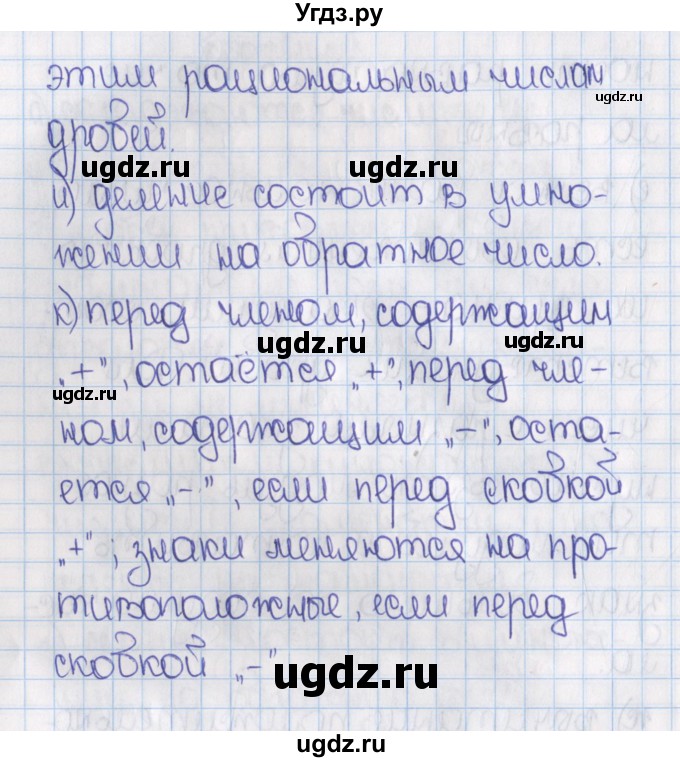 Угдз.ру
этим рациональным числам
ugdz.ru
дробей.
ugdz.ru ugdz.ru
и) деление состоит в умно-
жении на обратное число.
к) перед членом, содержащим
„+", остаётся „+", перед чле-
ugdz.ru ugdz.ru
ugdz.ru
ном, содержащим „-", оста-
ется „-", если перед скобкой
„+"; знаки меняются на про-
тивоположные, если перед
скобкой „-"
ugdz.ru
ugdz.ru